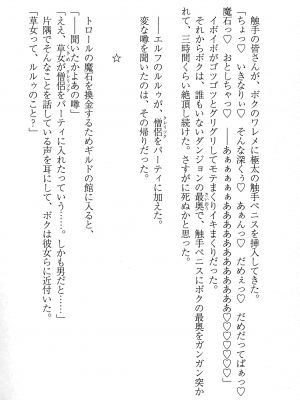 触手の皆さんが、ボクのワレメに極太の触手ペニスを挿入してきた。
「ちょっ♡　いきなりぃっ♡　そんな深くぅっ♡　あぁんっ♡　だめぇっ♡　だめだってばぁっ♡
魔石っ♡　おとしちゃっ♡　――あぁぁぁぁああああああああああ♡♡♡♡♡♡」
イボイボがゴツゴツとグリグリしてモテまくりイキまくりだった。
それからボクは、誰もいないダンジョンの最奥で、触手ペニスにボクの最奥をガンガン突か
れて、三時間くらい絶頂し続けた。さすがに死ぬかと思った。
――エルフのルルゥが、僧侶をパーティに加えた。
変な噂を聞いたのは、その帰りだった。
☆
トロールの魔石を換金するためギルドの館に入ると、
「――聞いたかよあの噂」
「ええ、草女が僧侶をパーティに入れたっていう……。しかも男だと……」
片隅でそんなことを話している声を耳にして、ボクは彼女らに近付いた。
「草女って、ルルゥのこと？」